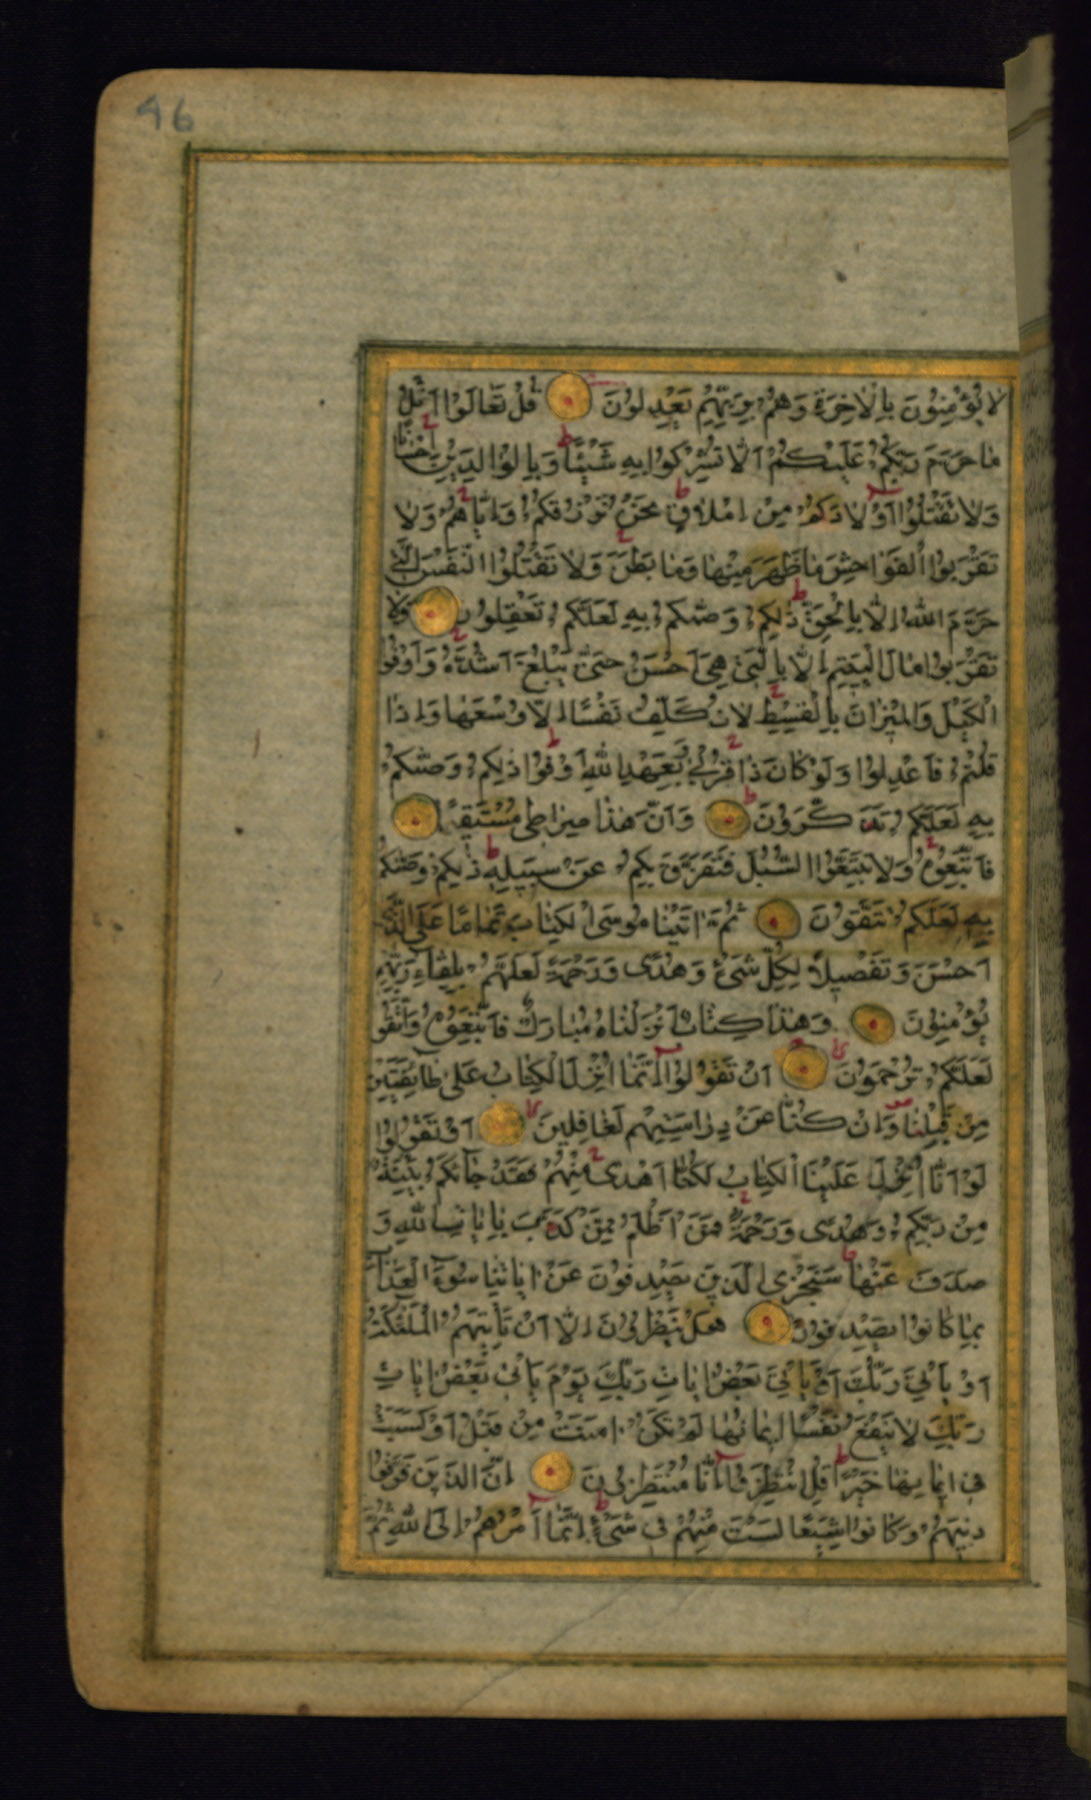 46
لا يُؤْمِنُونَ بِالْآخِرَةِ وَهُمْ بِرَبِّهِمْ يَعْدِلُونَ قُلْ تَعَالَوْا أَتْلُ
مَا حَرَّمَ رَبُّكُمْ عَلَيْكُمْ أَلَّا تُشْرِكُوا بِهِ شَيْئًا وَبِالْوَالِدَيْنِ إِحْسَانًا
وَلَا تَقْتُلُوا أَوْلَادَكُمْ مِنْ إِمْلَاقٍ نَحْنُ نَرْزُقُكُمْ وَإِيَّاهُمْ وَلَا
تَقْرَبُوا الْفَوَاحِشَ مَا ظَهَرَ مِنْهَا وَمَا بَطَنَ وَلَا تَقْتُلُوا النَّفْسَ الَّتِي
حَرَّمَ اللَّهُ إِلَّا بِالْحَقِّ ذَلِكُمْ وَصَّيكُمْ بِهِ لَعَلَّكُمْ تَعْقِلُونَ وَلَا
تَقْرَبُوا مَالَ الْيَتِيمِ إِلَّا بِالَّتِي هِيَ أَحْسَنُ حَتَّى يَبْلُغَ أَشُدَّهُ وَأَوْفُوا
الْكَيْلَ وَالْمِيزَانَ بِالْقِسْطِ لَا نُكَلِّفُ نَفْسًا إِلَّا وُسْعَهَا وَإِذَا
قُلْتُمْ فَاعْدِلُوا وَلَوْ كَانَ ذَا قُرْبَى وَبِعَهْدِ اللَّهِ أَوْفُوا ذَلِكُمْ وَصَّيكُمْ
بِهِ لَعَلَّكُمْ تَذَكَّرُونَ وَأَنَّ هَذَا صِرَاطِي مُسْتَقِيمًا
فَاتَّبِعُوهُ وَلَا تَتَّبِعُوا السُّبُلَ فَتَفَرَّقَ بِكُمْ عَنْ سَبِيلِهِ ذَلِكُمْ وَصَّيكُمْ
بِهِ لَعَلَّكُمْ تَتَّقُونَ ثُمَّ آتَيْنَا مُوسَى الْكِتَابَ تَمَامًا عَلَى الَّذِي
أَحْسَنَ وَتَفْصِيلًا لِكُلِّ شَيْءٍ وَهُدًى وَرَحْمَةً لَعَلَّهُمْ بِلِقَاءِ رَبِّهِمْ
يُؤْمِنُونَ وَهَذَا كِتَابٌ أَنْزَلْنَاهُ مُبَارَكٌ فَاتَّبِعُوهُ وَاتَّقُوا
لَعَلَّكُمْ تُرْحَمُونَ أَنْ تَقُولُوا إِنَّمَا أُنْزِلَ الْكِتَابُ عَلَى طَائِفَتَيْنِ
مِنْ قَبْلِنَا وَإِنْ كُنَّا عَنْ دِرَاسَتِهِمْ لَغَافِلِينَ أَوْ تَقُولُوا
لَوْ أَنَّا أُنْزِلَ عَلَيْنَا الْكِتَابُ لَكُنَّا أَهْدَى مِنْهُمْ فَقَدْ جَاءَكُمْ بَيِّنَةٌ
مِنْ رَبِّكُمْ وَهُدًى وَرَحْمَةٌ فَمَنْ أَظْلَمُ مِمَّنْ كَذَّبَ بِآيَاتِ اللَّهِ وَ
صَدَفَ عَنْهَا سَنَجْزِي الَّذِينَ يَصْدِفُونَ عَنْ آيَاتِنَا سُوءَ الْعَذَابِ
بِمَا كَانُوا يَصْدِفُونَ هَلْ يَنْظُرُونَ إِلَّا أَنْ تَأْتِيَهُمُ الْمَلَئِكَةُ
أَوْ يَأْتِيَ رَبُّكَ أَوْ يَأْتِيَ بَعْضُ آيَاتِ رَبِّكَ يَوْمَ يَأْتِي بَعْضُ آيَاتِ
رَبِّكَ لَا يَنْفَعُ نَفْسًا إِيمَانُهَا لَمْ تَكُنْ آمَنَتْ مِنْ قَبْلُ أَوْ كَسَبَتْ
فِي إِيمَانِهَا خَيْرًا قُلِ انْتَظِرُوا إِنَّا مُنْتَظِرُونَ إِنَّ الَّذِينَ فَرَّقُوا
دِينَهُمْ وَكَانُوا شِيَعًا لَسْتَ مِنْهُمْ فِي شَيْءٍ إِنَّمَا أَمْرُهُمْ إِلَى اللَّهِ ثُمَّ